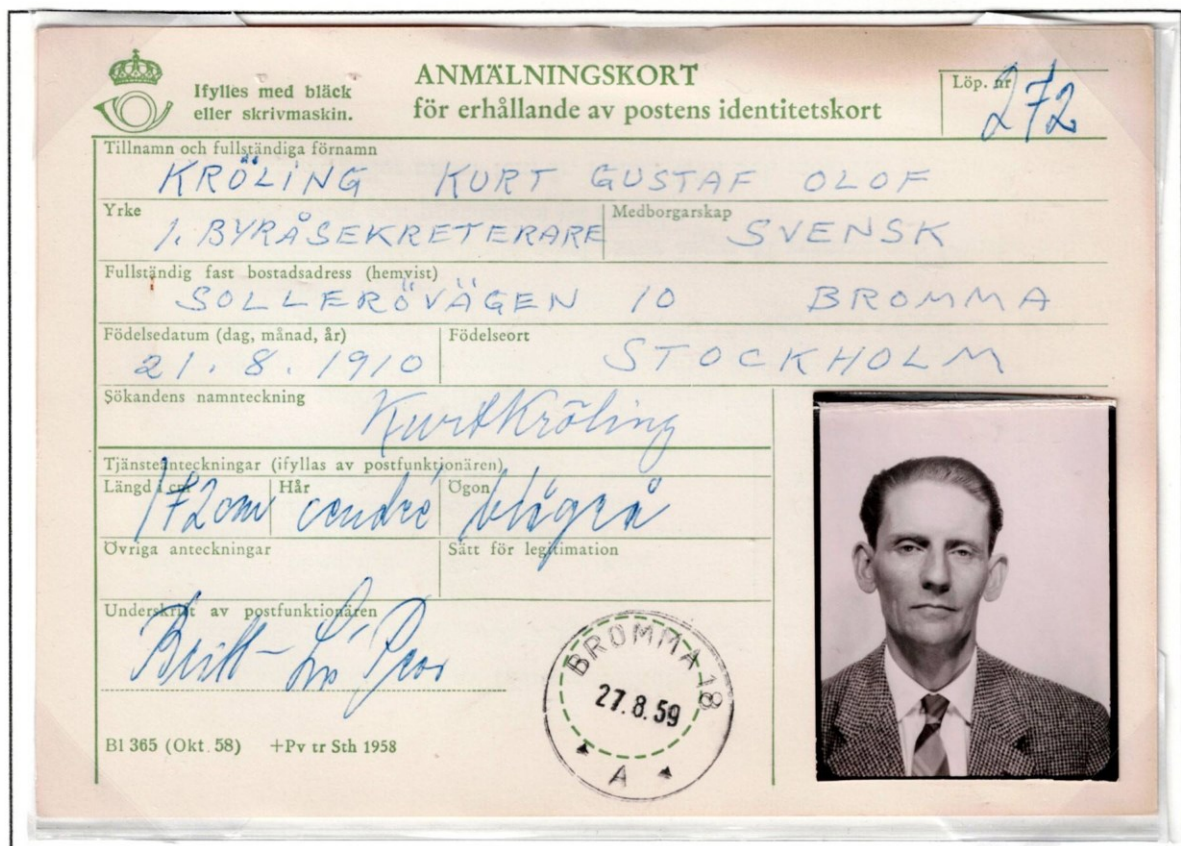 Ifylles med bläck
eller skrivmaskin.
ANMÄLNINGSKORT
för erhållande av postens identitetskort
Löp. nr 272
Tillnamn och fullständiga förnamn
KRÖLING KURT GUSTAF OLOF
Yrke
1. BYRÅSEKRETERARE
Medborgarskap
SVENSK
Fullständig fast bostadsadress (hemvist)
SOLLERÖVÄGEN 10 BROMMA
Födelsedatum (dag, månad, år)
21. 8. 1910
Födelseort
STOCKHOLM
Sökandens namnteckning
Kurt Kröling
Tjänsteanteckningar (ifyllas av postfunktionären)
Längd i cm
172 cm
Hår
cendré
Ögon
blågrå
Övriga anteckningar
Sätt för legitimation
Underskrift av postfunktionären
Britt-
BROMMA 18
27.8.59
A
Bl 365 (Okt. 58) +Pv tr Sth 1958